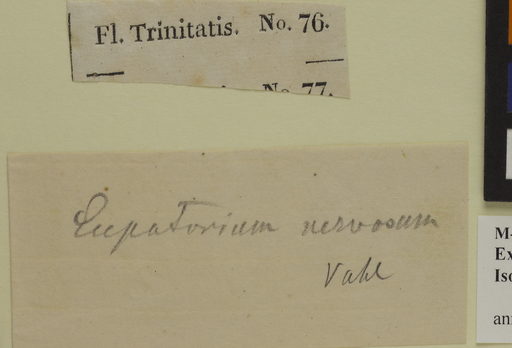 Fl. Trinitatis. No. 76.
No. 77.
Eupatorium nervosum
Vahl
M-
Ex
Iso
an